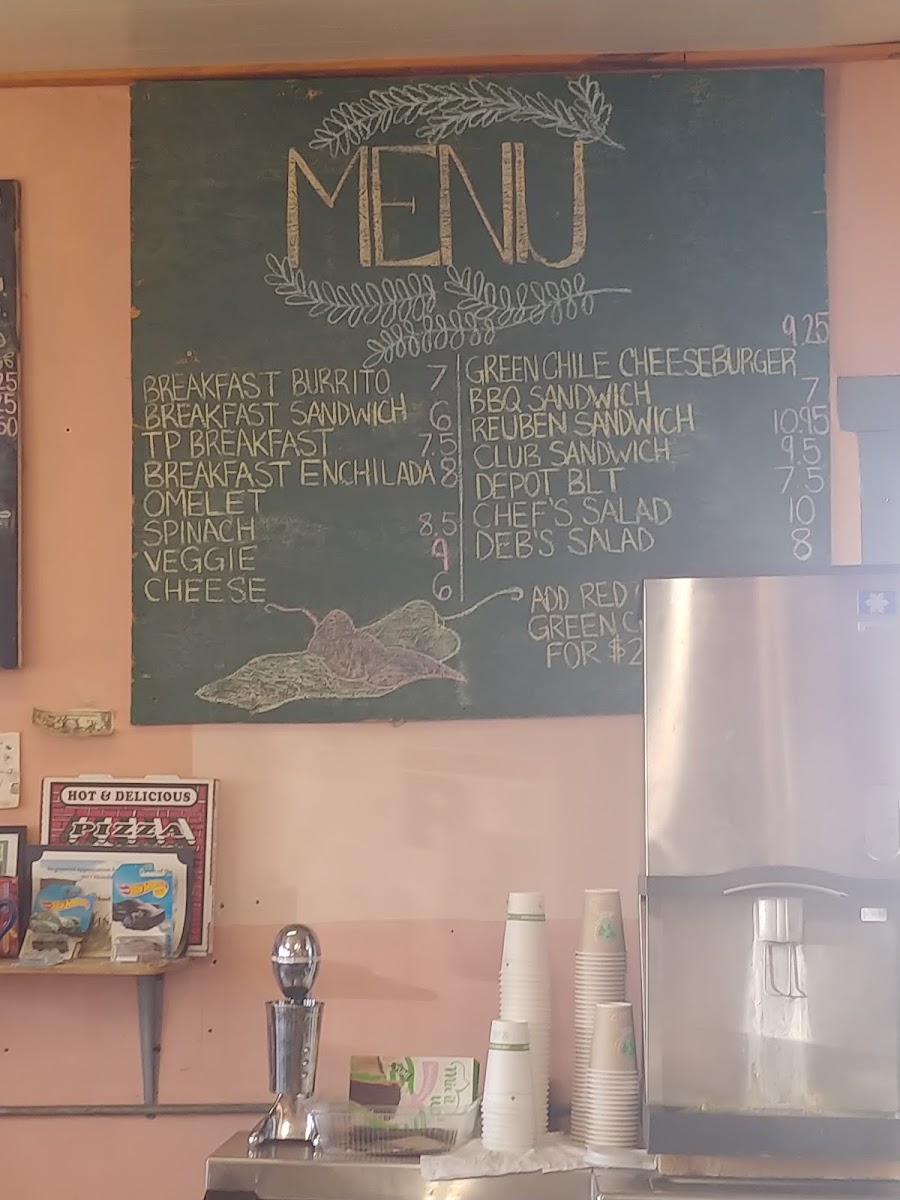 MENU
BREAKFAST BURRITO 7
BREAKFAST SANDWICH 6
TP BREAKFAST 7.5
BREAKFAST ENCHILADA 8
OMELET
SPINACH 8.5
VEGGIE 9
CHEESE 6
9.25
GREEN CHILE CHEESEBURGER
BBQ SANDWICH 7
REUBEN SANDWICH 10.95
CLUB SANDWICH 9.5
DEPOT BLT 7.5
CHEF'S SALAD 10
DEB'S SALAD 8
ADD RED
GREEN C
FOR $2
25
25
50
HOT & DELICIOUS
PIZZA
Hot Wheels
Hot Wheels
Mix it